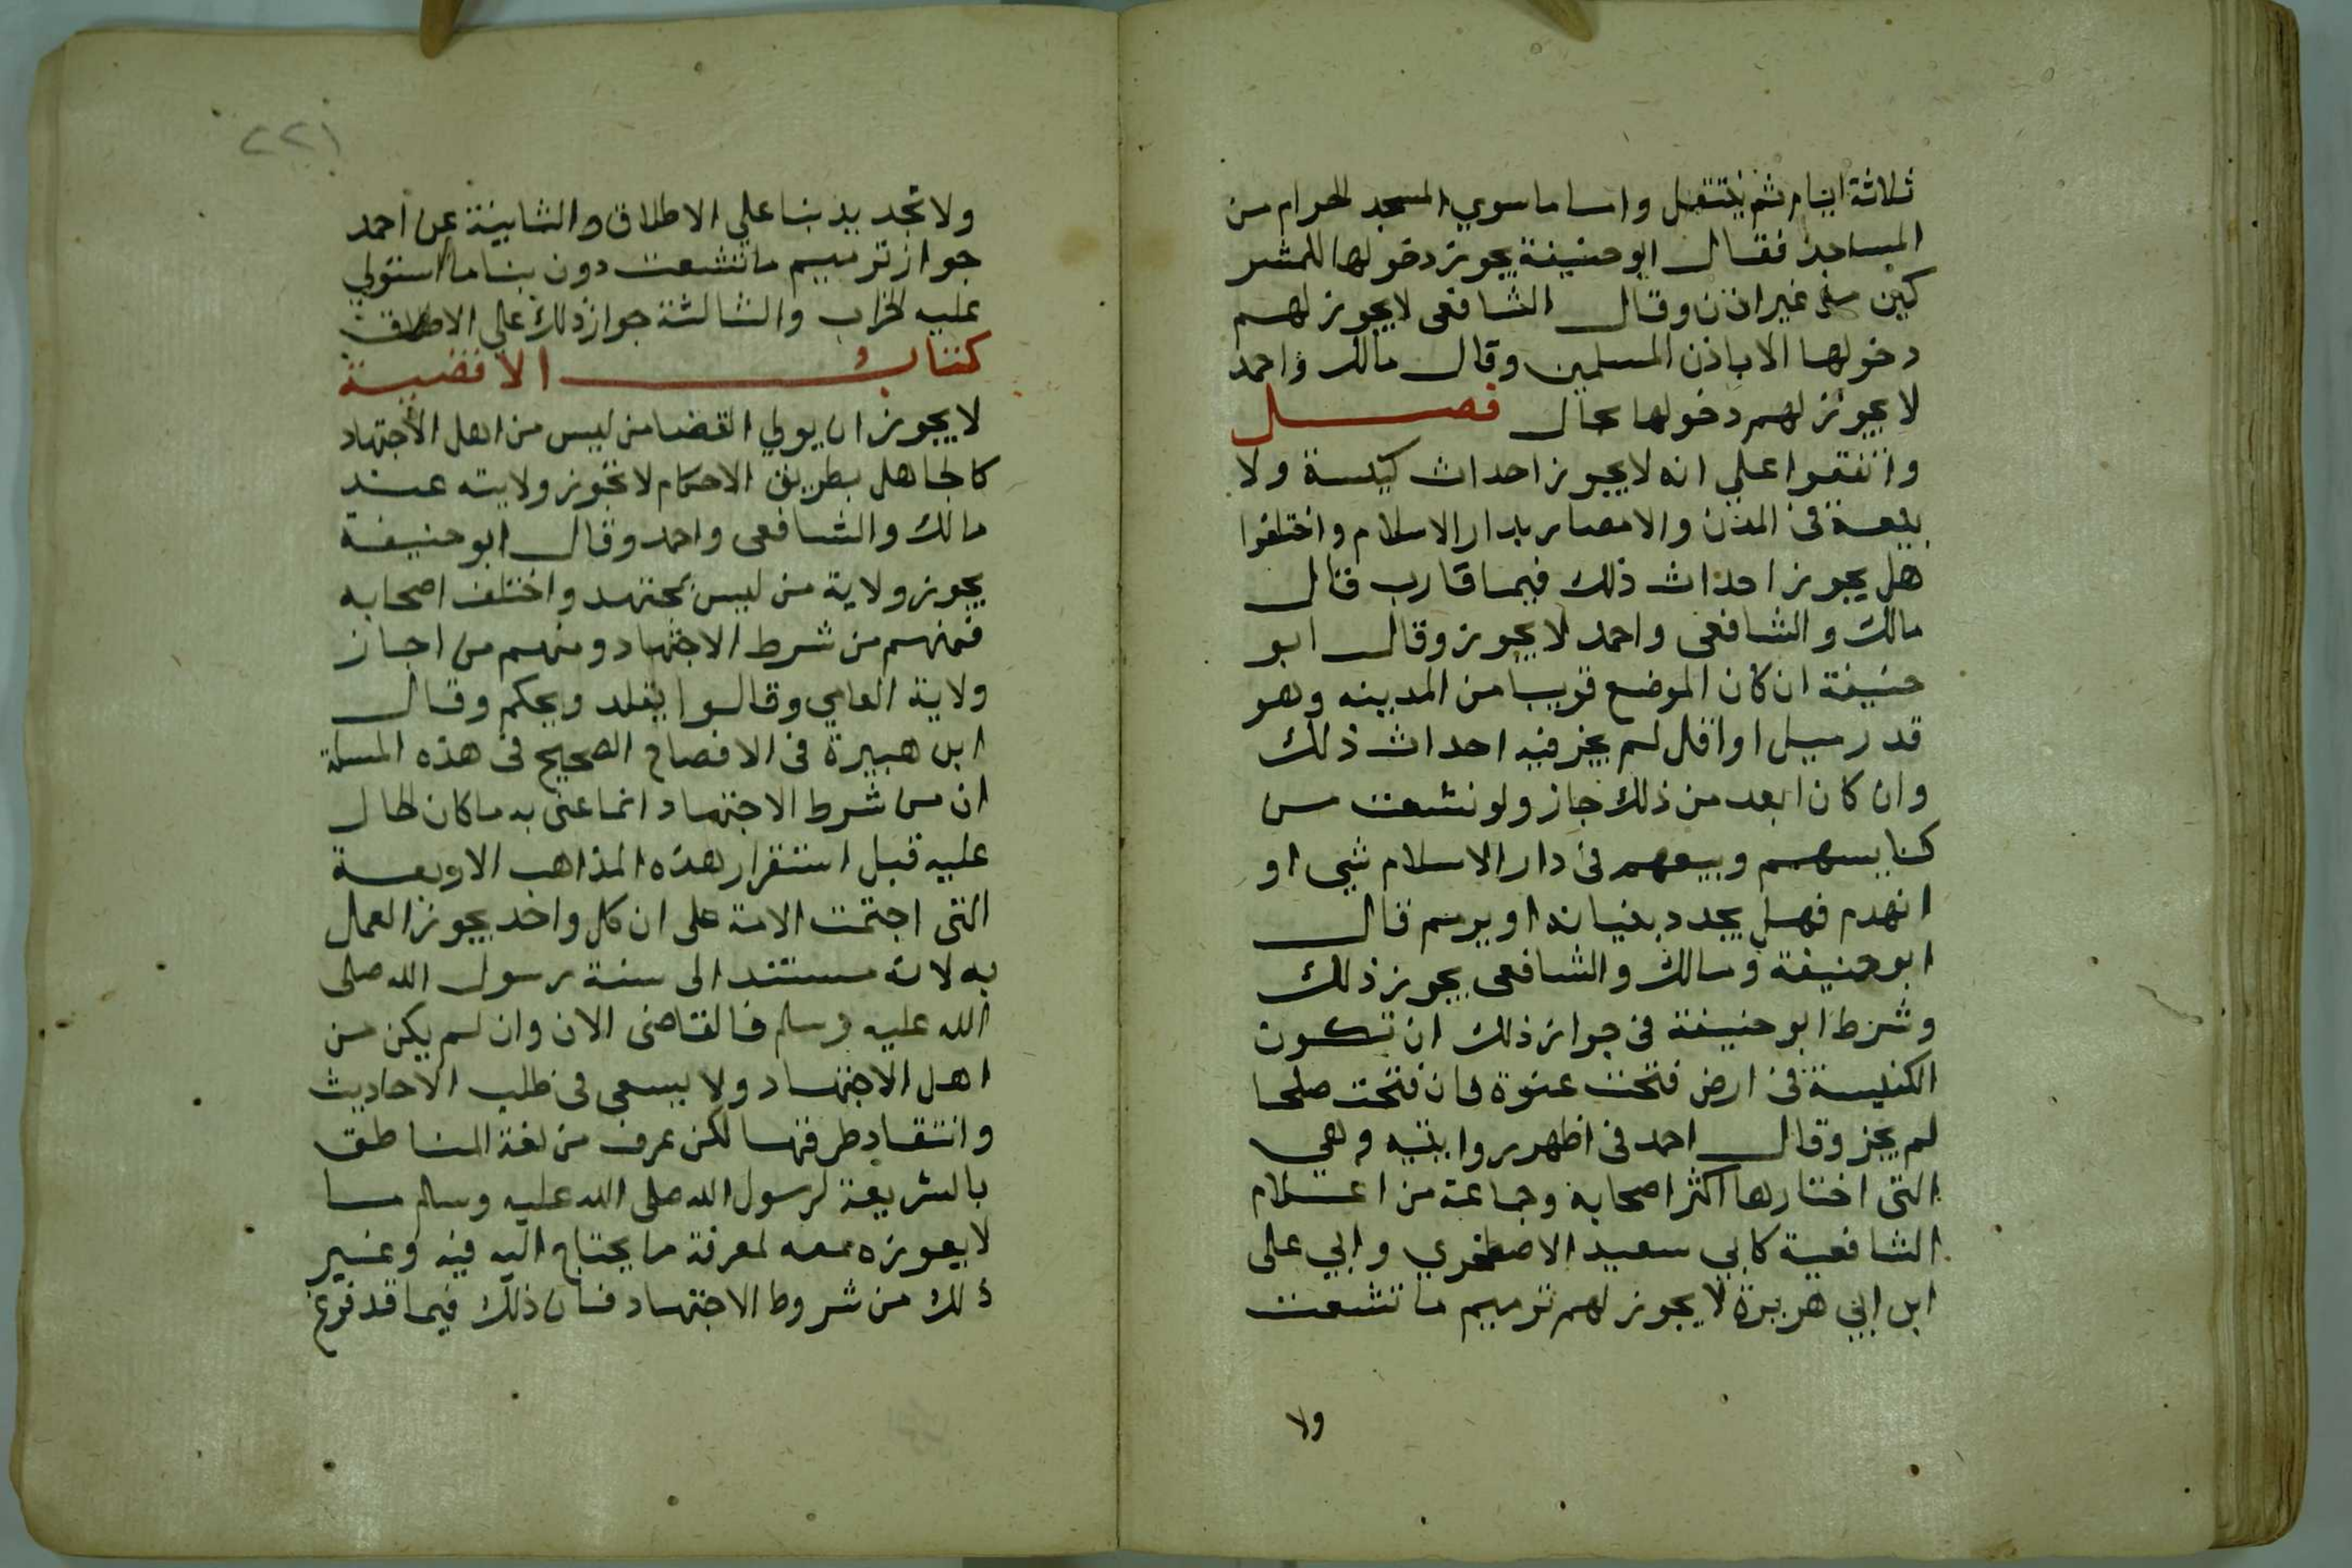 ثلاثة ايام ثم ينتقل واما ما سوي المسجد الحرام من
المساجد فقال ابو حنيفة يجوز دخولها للمشر
كين من غير اذن وقال الشافعى لا يجوز لهم
دخولها الا باذن المسلمين وقال مالك واحمد
لا يجوز لهم دخولها بحال فصل
واتفقوا علي انه لا يجوز احداث كنيسة ولا
بيعة في المدن والامصار بدار الاسلام واختلفوا
هل يجوز احداث ذلك فيما قارب قال
مالك والشافعى واحمد لا يجوز وقال ابو
حنيفة ان كان الموضع قريبا من المدينه وهو
قدر ميل او اقل لم يجز فيه احداث ذلك
وان كان ابعد من ذلك جاز ولو تشعت من
كنايسهم وبيعهم في دار الاسلام شي او
انهدم فهل يجدد بنيانه او يرمم قال
ابو حنيفة ومالك والشافعى يجوز ذلك
وشرط ابو حنيفة في جواز ذلك ان تكون
الكنيسة في ارض فتحت عنوة فان فتحت صلحا
لم يجز وقال احمد في اظهر روايتيه وهي
التى اختارها اكثر اصحابه وجماعة من اعلام
الشافعية كابي سعيد الاصطخري وابي على
ابن ابي هريرة لا يجوز لهم ترميم ما تشعت
ولا
٢٢١
ولا تجديد بنا علي الاطلاق والثانية عن احمد
جواز ترميم ما تشعت دون بنا ما استولي
عليه الخراب والثالثة جواز ذلك علي الاطلاق
كتاب الاقضية
لا يجوز ان يولي القضا من ليس من اهل الاجتهاد
كالجاهل بطريق الاحكام لا تجوز ولايته عند
مالك والشافعى واحمد وقال ابو حنيفة
يجوز ولاية من ليس بمجتهد واختلف اصحابه
فمنهم من شرط الاجتهاد ومنهم من اجاز
ولاية العامي وقالوا يقلد ويحكم وقال
ابن هبيرة في الافصاح الصحيح في هذه المسلة
ان من شرط الاجتهاد انما عنى به ما كان الحال
عليه قبل استقرار هذه المذاهب الاربعة
التى اجتمعت الامة على ان كل واحد يجوز العمل
به لانه مستند الى سنة رسول الله صلى
الله عليه وسلم فالقاضى الان وان لم يكن من
اهل الاجتهاد ولا يسعى في طلب الاحاديث
وانتقاد طرقها لكن عرف من لغة الناطق
بالشريعة لرسول الله صلى الله عليه وسلم ما
لا يعوزه معه لمعرفة ما يحتاج اليه فيه وغير
ذلك من شروط الاجتهاد فان ذلك فيما قد فرغ